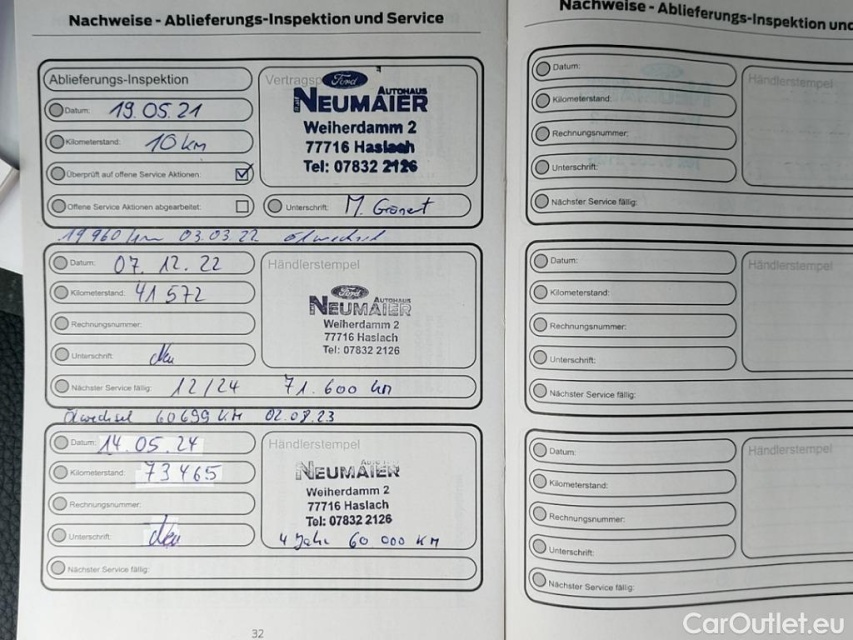 Nachweise - Ablieferungs-Inspektion und Service
Ablieferungs-Inspektion
Datum: 19.05.21
Kilometerstand: 10 km
Überprüft auf offene Service Aktionen:
Offene Service Aktionen abgearbeitet:
Vertragsp
Ford
AUTOHAUS
NEUMAIER
Weiherdamm 2
77716 Haslach
Tel: 07832 2126
Unterschrift:
19960 km 03.03.22 Ölwechsel
Datum: 07.12.22
Kilometerstand: 41 572
Rechnungsnummer:
Unterschrift:
Nächster Service fällig: 12/24 71.600 km
Händlerstempel
Ford
AUTOHAUS
NEUMAIER
Weiherdamm 2
77716 Haslach
Tel: 07832 2126
Ölwechsel 60699 KM 02.08.23
Datum: 14.05.24
Kilometerstand: 73465
Rechnungsnummer:
Unterschrift:
Nächster Service fällig:
Händlerstempel
NEUMAIER
Weiherdamm 2
77716 Haslach
Tel: 07832 2126
4 Jahr 60 000 KM
32
Nachweise - Ablieferungs-Inspektion und
Datum:
Kilometerstand:
Rechnungsnummer:
Unterschrift:
Nächster Service fällig:
Händlerstempel
Datum:
Kilometerstand:
Rechnungsnummer:
Unterschrift:
Nächster Service fällig:
Händlerstempel
Datum:
Kilometerstand:
Rechnungsnummer:
Unterschrift:
Nächster Service fällig:
Händlerstempel
CarOutlet.eu